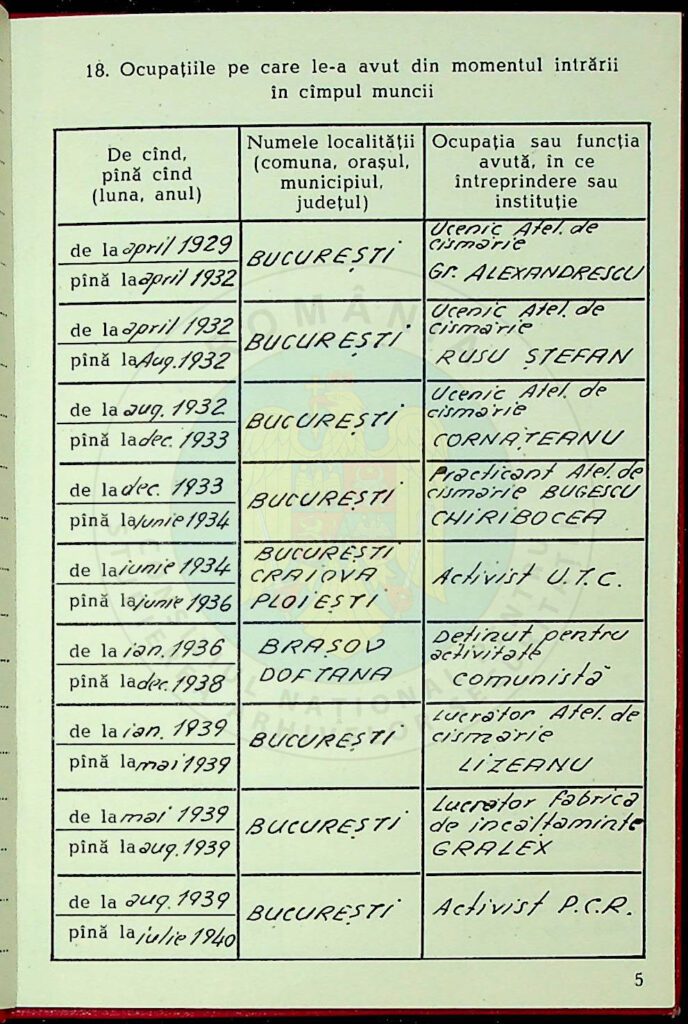 18. Ocupațiile pe care le-a avut din momentul intrării
în cîmpul muncii
De cînd,
pînă cînd
(luna, anul)
Numele localității
(comuna, orașul,
municipiul,
județul)
Ocupația sau funcția
avută, în ce
întreprindere sau
instituție
de la april 1929
pînă la april 1932
BUCUREȘTI
Ucenic Atel. de
cismărie
Gr. ALEXANDRESCU
de la april 1932
pînă la Aug. 1932
BUCUREȘTI
Ucenic Atel. de
cismărie
RUSU ȘTEFAN
de la aug. 1932
pînă la dec. 1933
BUCUREȘTI
Ucenic Atel. de
cismărie
CORNĂȚEANU
de la dec. 1933
pînă la iunie 1934
BUCUREȘTI
Practicant Atel. de
cismărie BUGESCU
CHIRIBOCEA
de la iunie 1934
pînă la iunie 1936
BUCUREȘTI
CRAIOVA
PLOIEȘTI
Activist U.T.C.
de la ian. 1936
pînă la dec. 1938
BRAȘOV
DOFTANA
Deținut pentru
activitate
comunistă
de la ian. 1939
pînă la mai 1939
BUCUREȘTI
Lucrător Atel. de
cismărie
LIZEANU
de la mai 1939
pînă la aug. 1939
BUCUREȘTI
Lucrător fabrica
de încălțăminte
GRALEX
de la aug. 1939
pînă la iulie 1940
BUCUREȘTI
Activist P.C.R.
5
ROMÂNIA
CONSILIUL NAȚIONAL PENTRU
STUDIEREA ARHIVELOR SECURITĂȚII